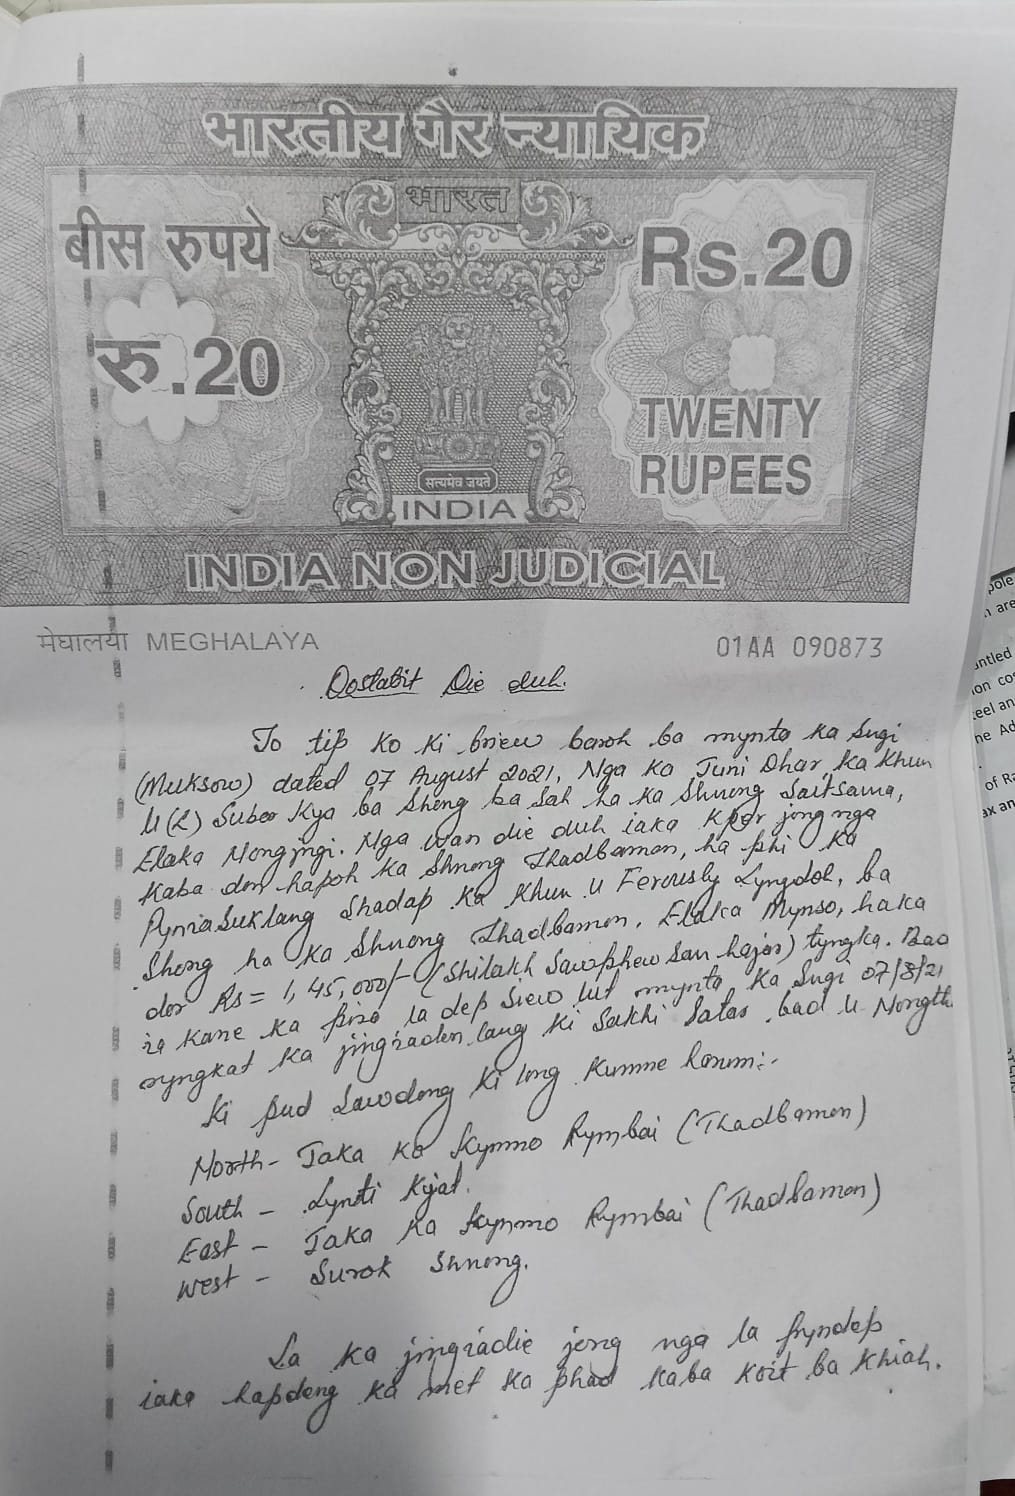 भारतीय गैर न्यायिक
भारत
बीस रुपये
Rs.20
रु.20
TWENTY
RUPEES
सत्यमेव जयते
INDIA
INDIA NON JUDICIAL
मेघालया MEGHALAYA
01AA 090873
Dostabit Die duh.
To tip ko ki briew baroh ba mynta ka Sngi
(Muksow) dated 07 August 2021, Nga ka Juni Dhar, ka khun
U (L) Suber Kya ba Shong ba Sah ha ka Shnong Saitsama,
Elaka Nongjngi. Nga wan die duh iaka Kper jong nga
Kaba don hapoh ka Shnong Thadbamon, ha phi ka
Shadap ka khun u Ferously Lyngdoh, ba
Shong ha ka Shnong Thadbamon, Elaka Mynso, haka
dor Rs = 1,45,000/- (Shilakh Sawphew San hajar) tyngka. Bad
ia kane ka pisa la dep Siew lut mynta ka Sngi 07/8/21
ryngkat ka lang ki Sakhi Satas bad u
Ki pud Sawdong ki long Kumne harum:-
North - Jaka ka Kynmo Rymbai (Thadbamon)
South - Lynti Kjat.
East - Jaka ka Kynmo Rymbai (Thadbamon)
West - Surok Shnong.
La ka jingiadie jong nga la pyndep
iaka hapdeng ka met ka phad kaba koit ba khiah.
pole
are
antled
ion co
eel an
he Ad
of Ra
ax an